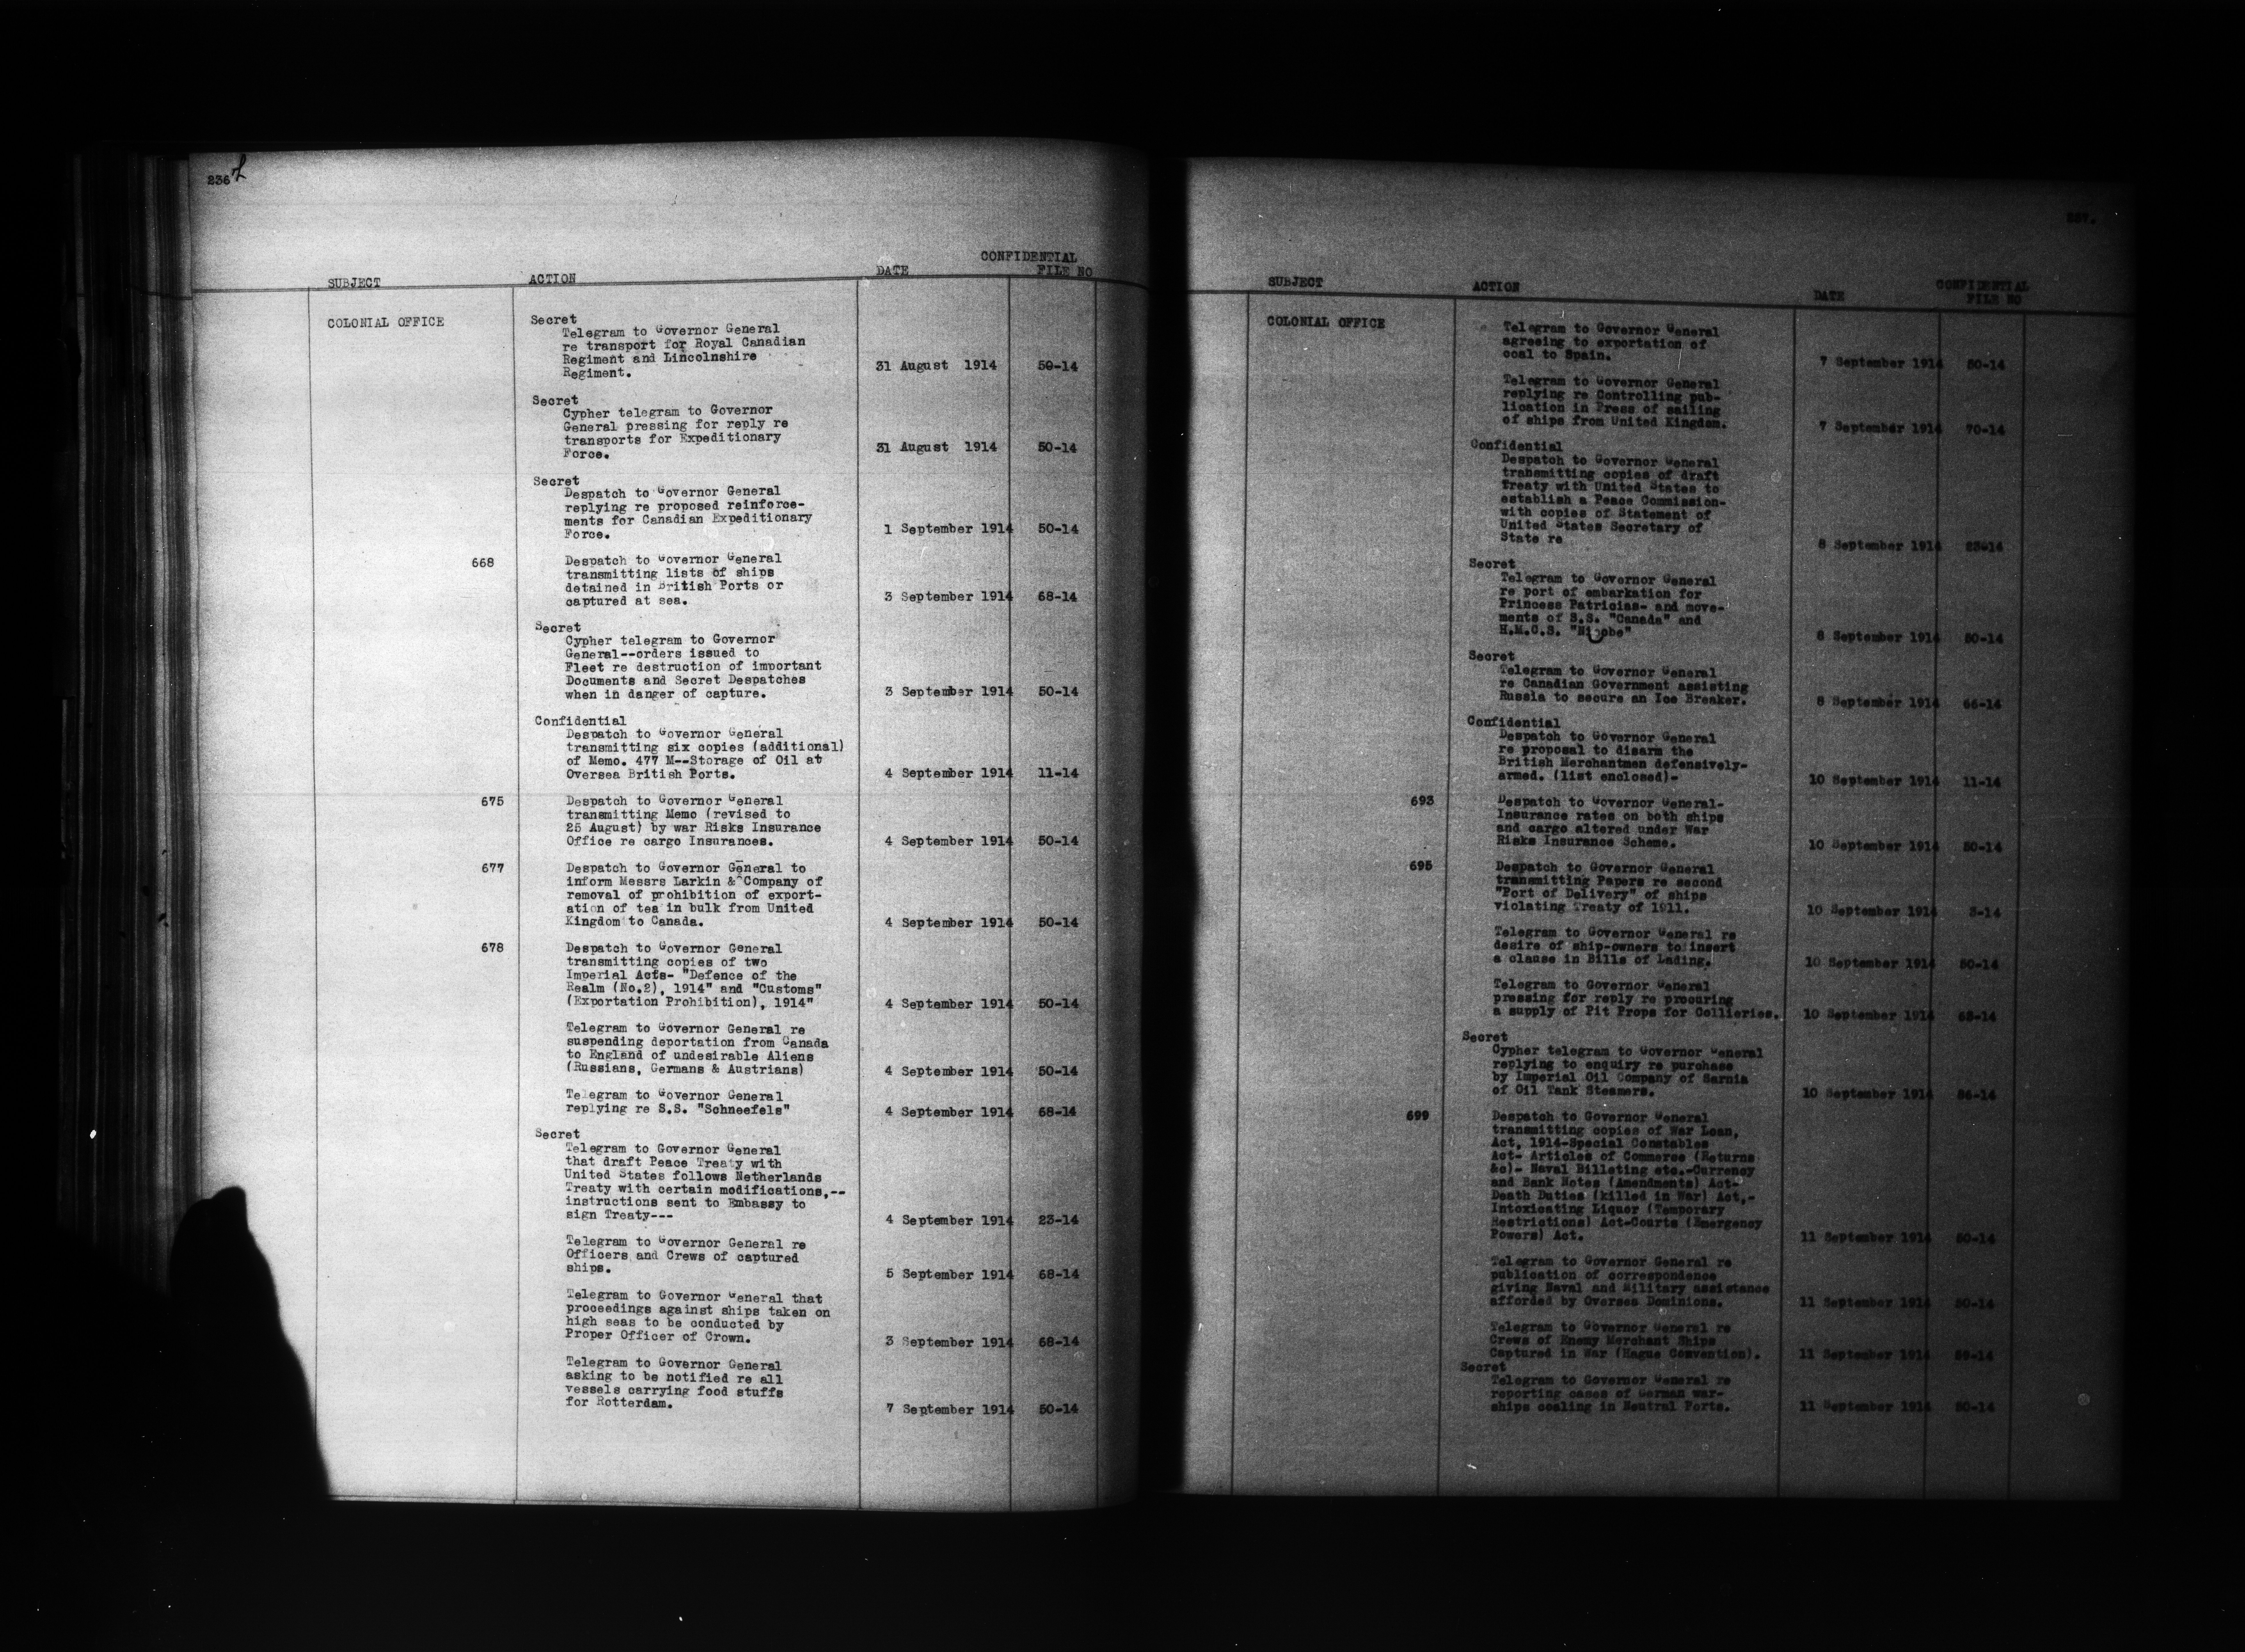 236
SUBJECT ACTION DATE CONFIDENTIAL FILE NO
COLONIAL OFFICE
Secret
Telegram to Governor General
re transport for Royal Canadian
Regiment and Lincolnshire
Regiment. 31 August 1914 50-14
Secret
Cypher telegram to Governor
General pressing for reply re
transports for Expeditionary
Force. 31 August 1914 50-14
Secret
Despatch to Governor General
replying re proposed reinforce-
ments for Canadian Expeditionary
Force. 1 September 1914 50-14
668 Despatch to Governor General
transmitting lists of ships
detained in British Ports or
captured at sea. 3 September 1914 68-14
Secret
Cypher telegram to Governor
General--orders issued to
Fleet re destruction of important
Documents and Secret Despatches
when in danger of capture. 3 September 1914 50-14
Confidential
Despatch to Governor General
transmitting six copies (additional)
of Memo. 477 M--Storage of Oil at
Oversea British Ports. 4 September 1914 11-14
675 Despatch to Governor General
transmitting Memo (revised to
25 August) by war Risks Insurance
Office re cargo Insurances. 4 September 1914 50-14
677 Despatch to Governor General to
inform Messrs Larkin & Company of
removal of prohibition of export-
ation of tea in bulk from United
Kingdom to Canada. 4 September 1914 50-14
678 Despatch to Governor General
transmitting copies of two
Imperial Acts- "Defence of the
Realm (No.2), 1914" and "Customs"
(Exportation Prohibition), 1914" 4 September 1914 50-14
Telegram to Governor General re
suspending deportation from Canada
to England of undesirable Aliens
(Russians, Germans & Austrians) 4 September 1914 50-14
Telegram to Governor General
replying re S.S. "Schneefels" 4 September 1914 68-14
Secret
Telegram to Governor General
that draft Peace Treaty with
United States follows Netherlands
Treaty with certain modifications,--
instructions sent to Embassy to
sign Treaty--- 4 September 1914 23-14
Telegram to Governor General re
Officers and Crews of captured
ships. 5 September 1914 68-14
Telegram to Governor General that
proceedings against ships taken on
high seas to be conducted by
Proper Officer of Crown. 3 September 1914 68-14
Telegram to Governor General
asking to be notified re all
vessels carrying food stuffs
for Rotterdam. 7 September 1914 50-14
237.
SUBJECT ACTION DATE CONFIDENTIAL FILE NO
COLONIAL OFFICE
Telegram to Governor General
agreeing to exportation of
coal to Spain. 7 September 1914 50-14
Telegram to Governor General
replying re Controlling pub-
lication in Press of sailing
of ships from United Kingdom. 7 September 1914 70-14
Confidential
Despatch to Governor General
transmitting copies of draft
Treaty with United States to
establish a Peace Commission-
with copies of Statement of
United States Secretary of
State re 8 September 1914 23-14
Secret
Telegram to Governor General
re port of embarkation for
Princess Patricias- and move-
ments of S.S. "Canada" and
H.M.C.S. "Niobe" 8 September 1914 50-14
Secret
Telegram to Governor General
re Canadian Government assisting
Russia to secure an Ice Breaker. 8 September 1914 66-14
Confidential
Despatch to Governor General
re proposal to disarm the
British Merchantmen defensively-
armed. (list enclosed)- 10 September 1914 11-14
693 Despatch to Governor General-
Insurance rates on both ships
and cargo altered under War
Risks Insurance Scheme. 10 September 1914 50-14
695 Despatch to Governor General
transmitting Papers re second
"Port of Delivery" of ships
violating Treaty of 1911. 10 September 1914 3-14
Telegram to Governor General re
desire of ship-owners to insert
a clause in Bills of Lading. 10 September 1914 50-14
Telegram to Governor General
pressing for reply re procuring
a supply of Pit Props for Collieries. 10 September 1914
Secret
Cypher telegram to Governor General
replying to enquiry re purchase
by Imperial Oil Company of Sarnia
of Oil Tank Steamers. 10 September 1914
699 Despatch to Governor General
transmitting copies of War Loan,
Act, 1914-Special Constables
Act- Articles of Commerce (Returns
&c)- Naval Billeting etc.-Currency
and Bank Notes (Amendments) Act-
Death Duties (killed in War) Act,-
Intoxicating Liquor (Temporary
Restrictions) Act-Courts (Emergency
Powers) Act. 11 September 1914 50-14
Telegram to Governor General re
publication of correspondence
giving Naval and Military assistance
afforded by Oversea Dominions. 11 September 1914 50-14
Telegram to Governor General re
Crews of Enemy Merchant Ships
Captured in War (Hague Convention). 11 September 1914
Secret
Telegram to Governor General re
reporting cases of German war-
ships coaling in Neutral Ports. 11 September 1914 50-14